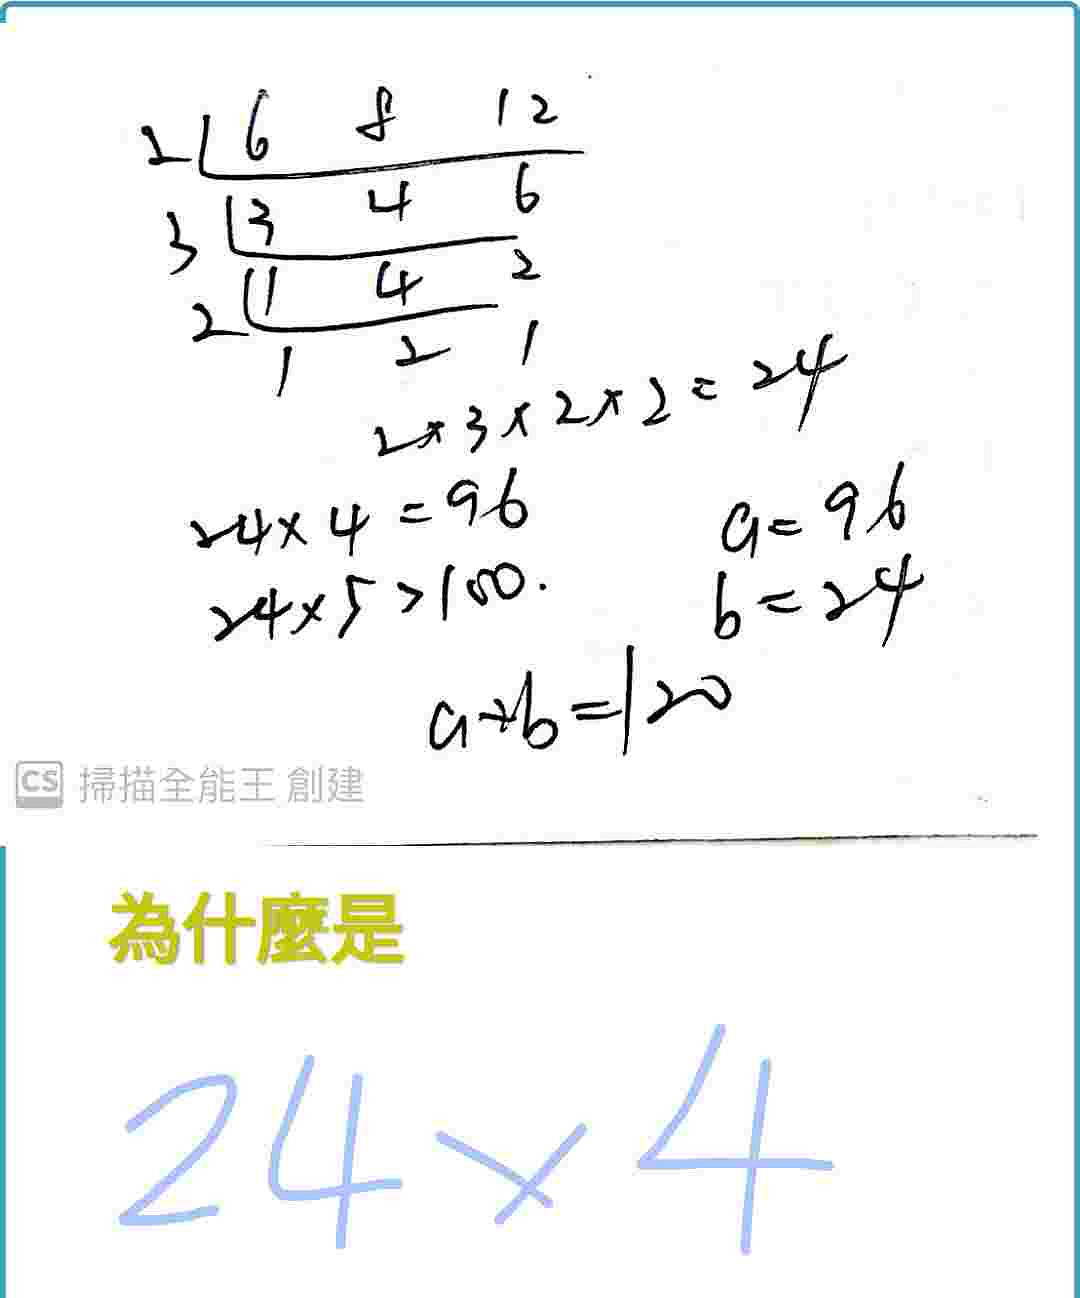 2 6 8 12
3 3 4 6
2 1 4 2
1 2 1
2×3×2×2=24
24×4=96
a=96
24×5>100.
b=24
a+b=120
CS 掃描全能王 創建
為什麼是
24×4